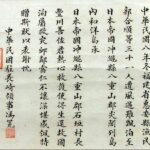 中華民國八年冬福建省惠安縣漁民
郭合順等三十一人遭風遇難飄泊至
日本帝國沖繩縣八重山郡尖閣列島
內和洋島承
日本帝國沖繩縣八重山郡石垣村長
豐川善佐君熱心救護使得生還故國
洵屬救災恤鄰當仁不讓深堪感荷特
贈斯狀以表謝忱
中華民國駐長崎領事馮冕